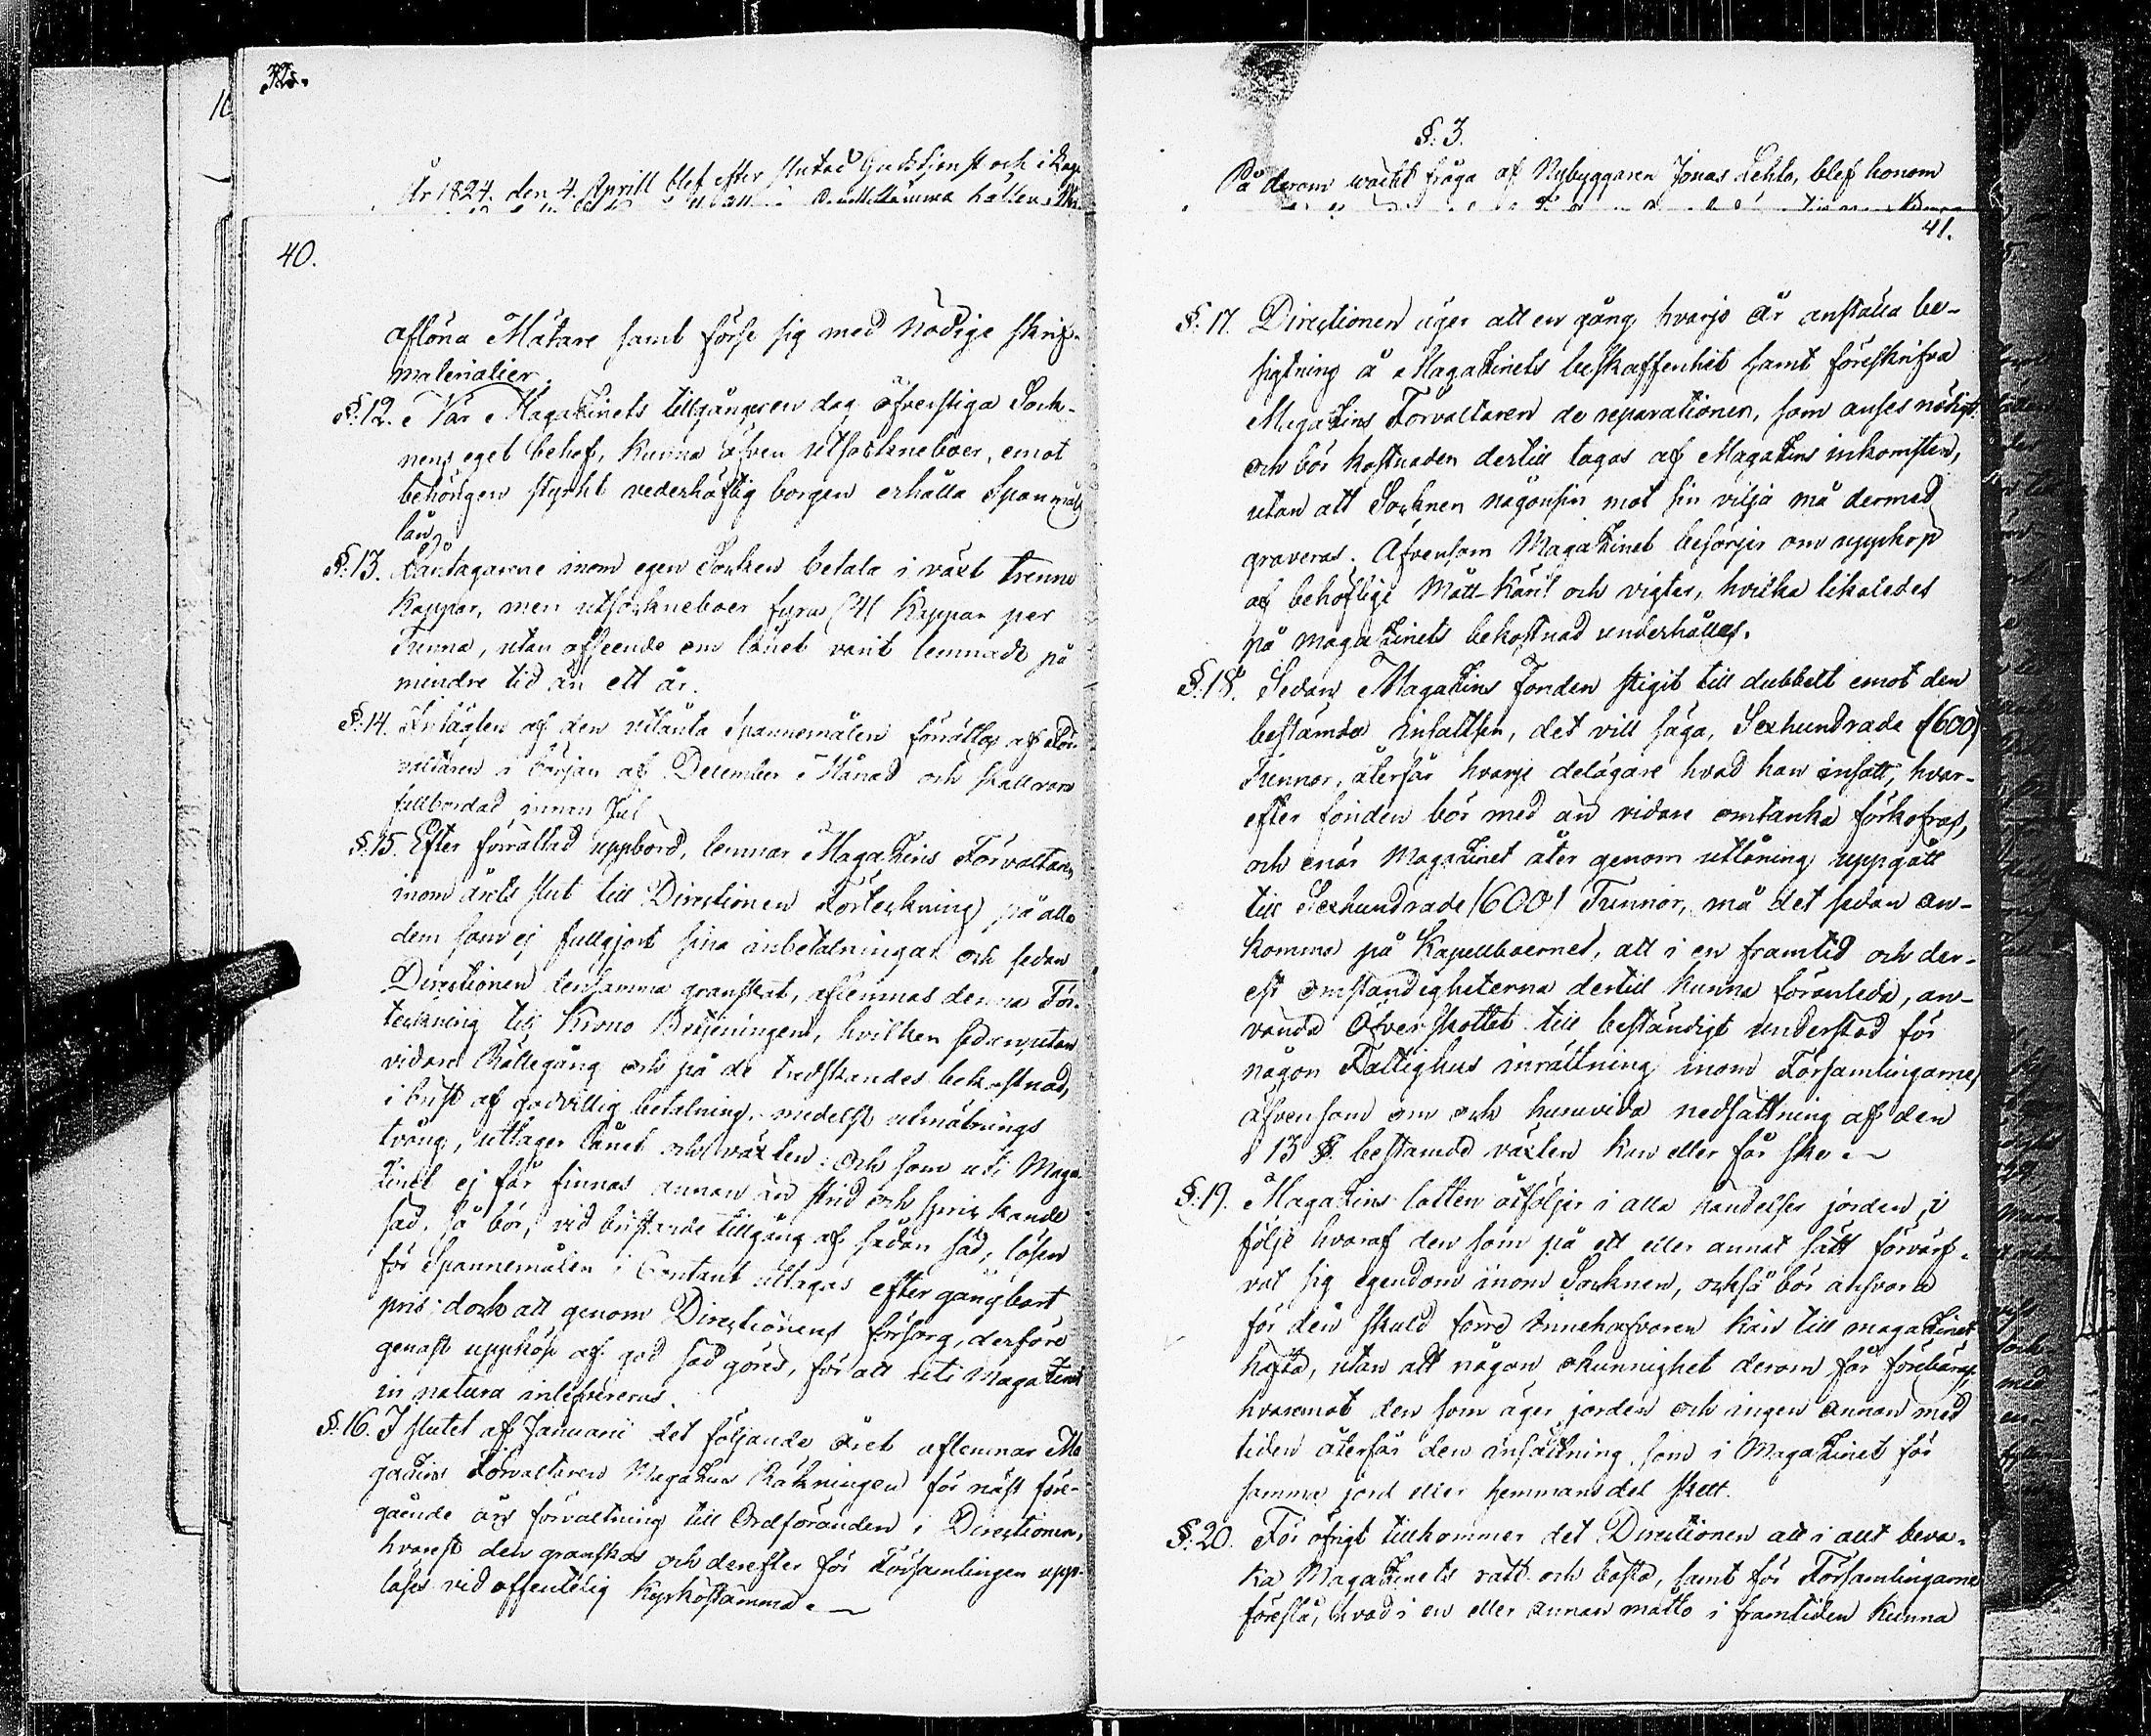 32.
År 1824. den 4. Aprill blef efter slutad Gudstjenst och i
40.
aflöna Mätare samt förse sig med nödige skrif-
materialier.
§. 12. När Magazinets tillgångar en dag öfverstiga Sock-
nens eget behof, kunna äfven utsockneboer, emot
behörigen styrkt vederhäftig borgen erhålla Spanmåls
lån.
§. 13. Låntagarne inom egen Socken betala i växt trenne
Kappar, men utsockneboer fyra (4) Kappar per
Tunna, utan afseende om lånet varit lemnadt på
mindre tid än ett år.
§. 14. Intägten af den utlånta Spannemålen förrättas af För-
valtaren i början af December Månad och skall vara
fullbordad innan Jul
§. 15. Efter förrättad uppbörd, lemnar Magazins Förvaltaren
inom årets slut till Directionen Förteckning på alla
dem som ej fullgjort sina inbetalningar och sedan
Directionen densamma granskat, aflemnas denna För-
teckning till Krono Betjeningen, hvilken sedan, utan
vidare Rättegång och på de tredskandes bekostnad,
i brist af godvillig betalning, medelst utmätnings
tvång, uttager lånet och växten: Och som uti Maga-
zinet ej får finnas annan än strid och skande
säd, så bör, vid bristande tillgång af sådan säd, lösen
för Spannemålen i Contant uttagas efter gångbart
pris; dock att genom Directionens försorg, derföre
genast uppköp af god säd göres, för att uti Magazinet
in natura inlefvereras.
§. 16. I slutet af Januarii det följande året aflemnar Ma
gazins Förvaltaren Magazins Räkningen för näst före-
gående års förvaltning till Ordföranden i Directionen,
hvarest den granskas och derefter för Församlingen upp-
läses vid offentelig Kyrkostämma.
§. 3.
På derom väckt fråga af Nybyggaren Jonas Lehto, blef honom
41.
§. 17. Directionen äger att en gång hvarje år anställa be-
sigtning å Magazinets beskaffenhet samt föreskrifva
Magazins Förvaltaren de reparationer, som anses nödigt
och bör kostnaden dertill tagas af Magazins inkomsten,
utan att Socknen någonsin mot sin vilja må dermed
graveras. Äfvensom Magazinet besörjer om uppköp
af behöflige Mått-Käril och vigter, hvilka likaledes
på magazinets bekostnad underhålles.
§. 18. Sedan Magazins Fonden stigit till dubbelt emot den
bestämda Insattsen, det vill säga, Sexhundrade (600)
Tunnor, återfår hvarje delägare hvad han insatt, hvar-
efter fonden bör med än vidare omtanka förkofras,
och enär Magazinet åter genom utlåning uppgått
till Sexhundrade (600) Tunnor, må det sedan an-
komma på Kapellboernes, att i en framtid och der-
est omständigheterna dertill kunna föranleda, an-
vända Öfverskottet till beständigt understöd för
någon Fattighus inrättning inom Församlingarne,
äfvensom om och huruvida nedsättning af den
i 13 §. bestämde växten kan eller får ske.
§. 19. Magazins lotten åtföljer i alla händelser jorden, i
följe hvaraf den som på ett eller annat sätt förvärf-
vat sig egendom inom Socknen, också bör ansvara
för den skuld förre Innehafvaren kan till magazinet
häfta, utan att någon okunnighet derom får förebäras,
hvaremot den som äger jorden och ingen annan med
tiden återfår den insättning som i Magazinet för
samma jord eller hemmansdel skett.
§. 20. För öfrigt tillkommer det Directionen att i allt beva-
ka Magazinets rätt och bästa, samt för Församlingarne
föreslå, hvad i en eller annan måtto i framtiden kunna